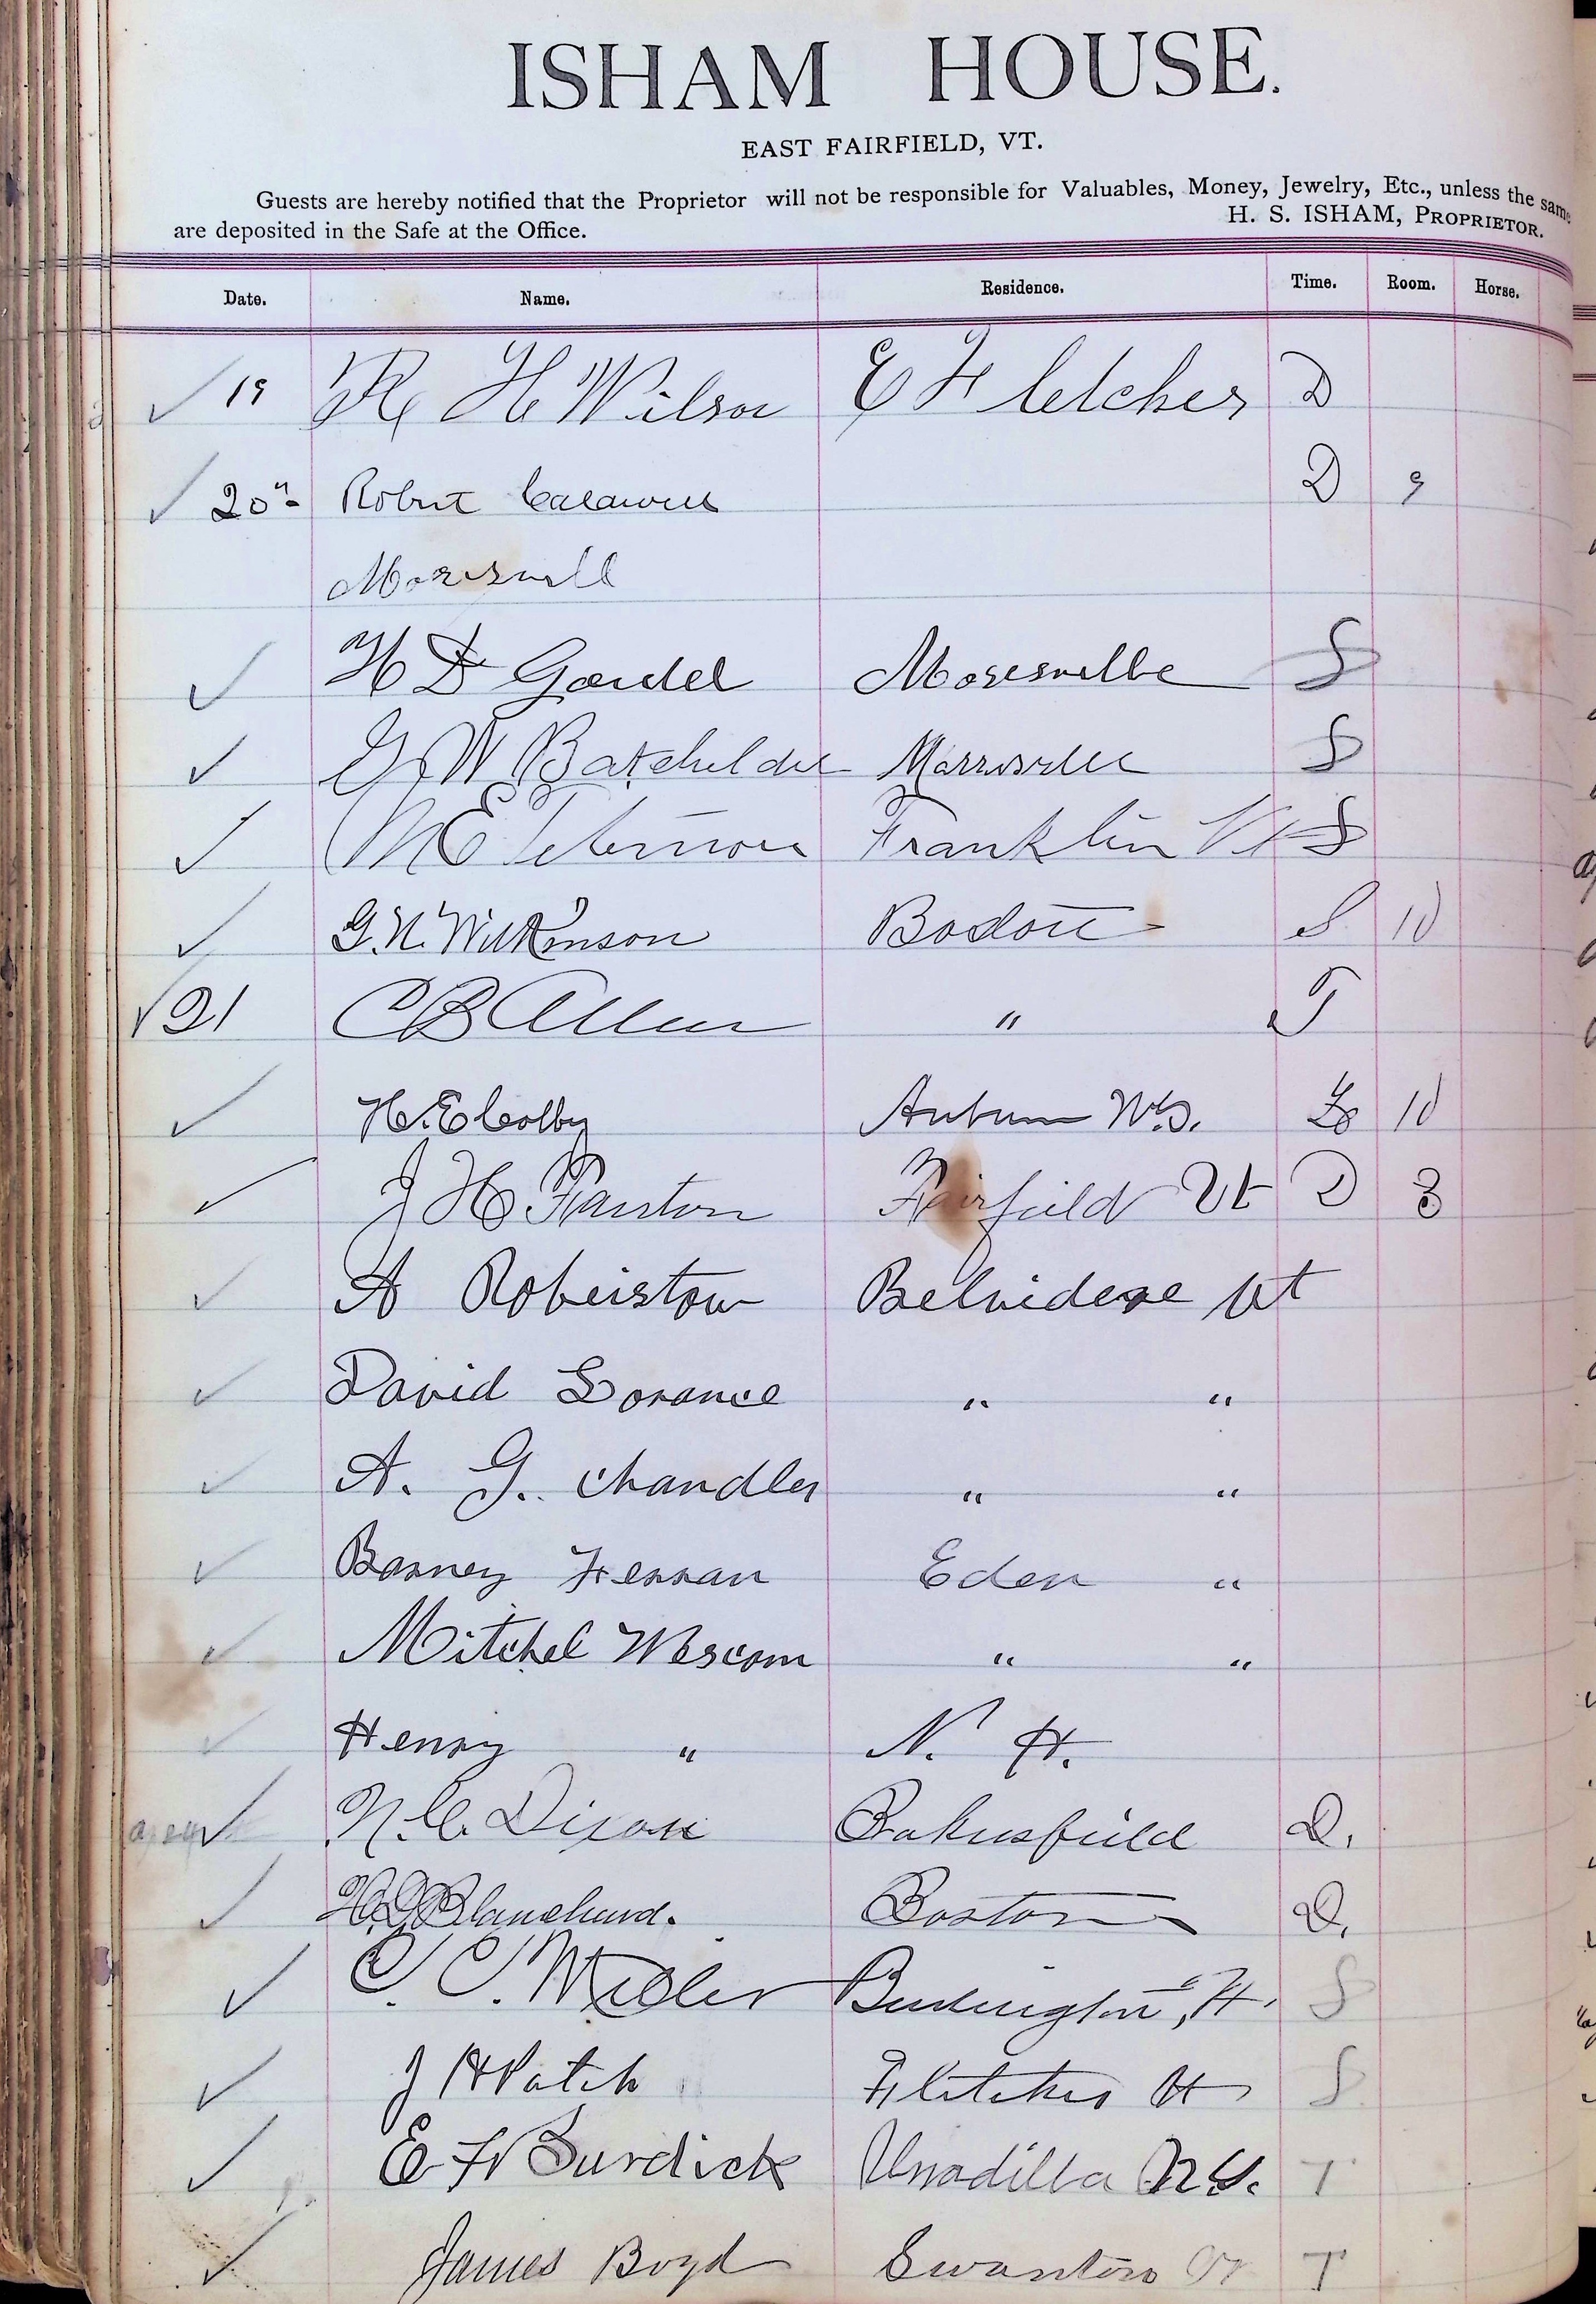 ISHAM HOUSE.
EAST FAIRFIELD, VT.
Guests are hereby notified that the Proprietor will not be responsible for Valuables, Money, Jewelry, Etc., unless the same
are deposited in the Safe at the Office.
H. S. ISHAM, PROPRIETOR.
Date. Name. Residence. Time. Room. Horse.
✓ 19 R H Wilson E Fletcher D
✓ 20" Robert D 9
✓ H D Morrisville S
✓ G W Batchelder Morrisville S
✓ M E Franklin Vt S
✓ G. N. Wilkinson Boston S 10
✓ 21 C B Allen " T
✓ H. E. Colby Auburn 10
✓ J H Fairfield Vt D 3
✓ A Roberstow Belvidere Vt
✓ David Lorance " "
✓ A. G. Chandler " "
✓ Barney Hernan Eden "
✓ Mitchel Wescom " "
✓ Henry " N. H.
✓ N. C. Dixon Bakersfield D.
✓ H. D. Blanchard. Boston D.
✓ C. C. Miller Burlington, Vt. S
✓ J H Patch Fletcher Vt S
✓ E F Burdick Unadilla N.Y. T
✓ James Boyd Swanton Vt T